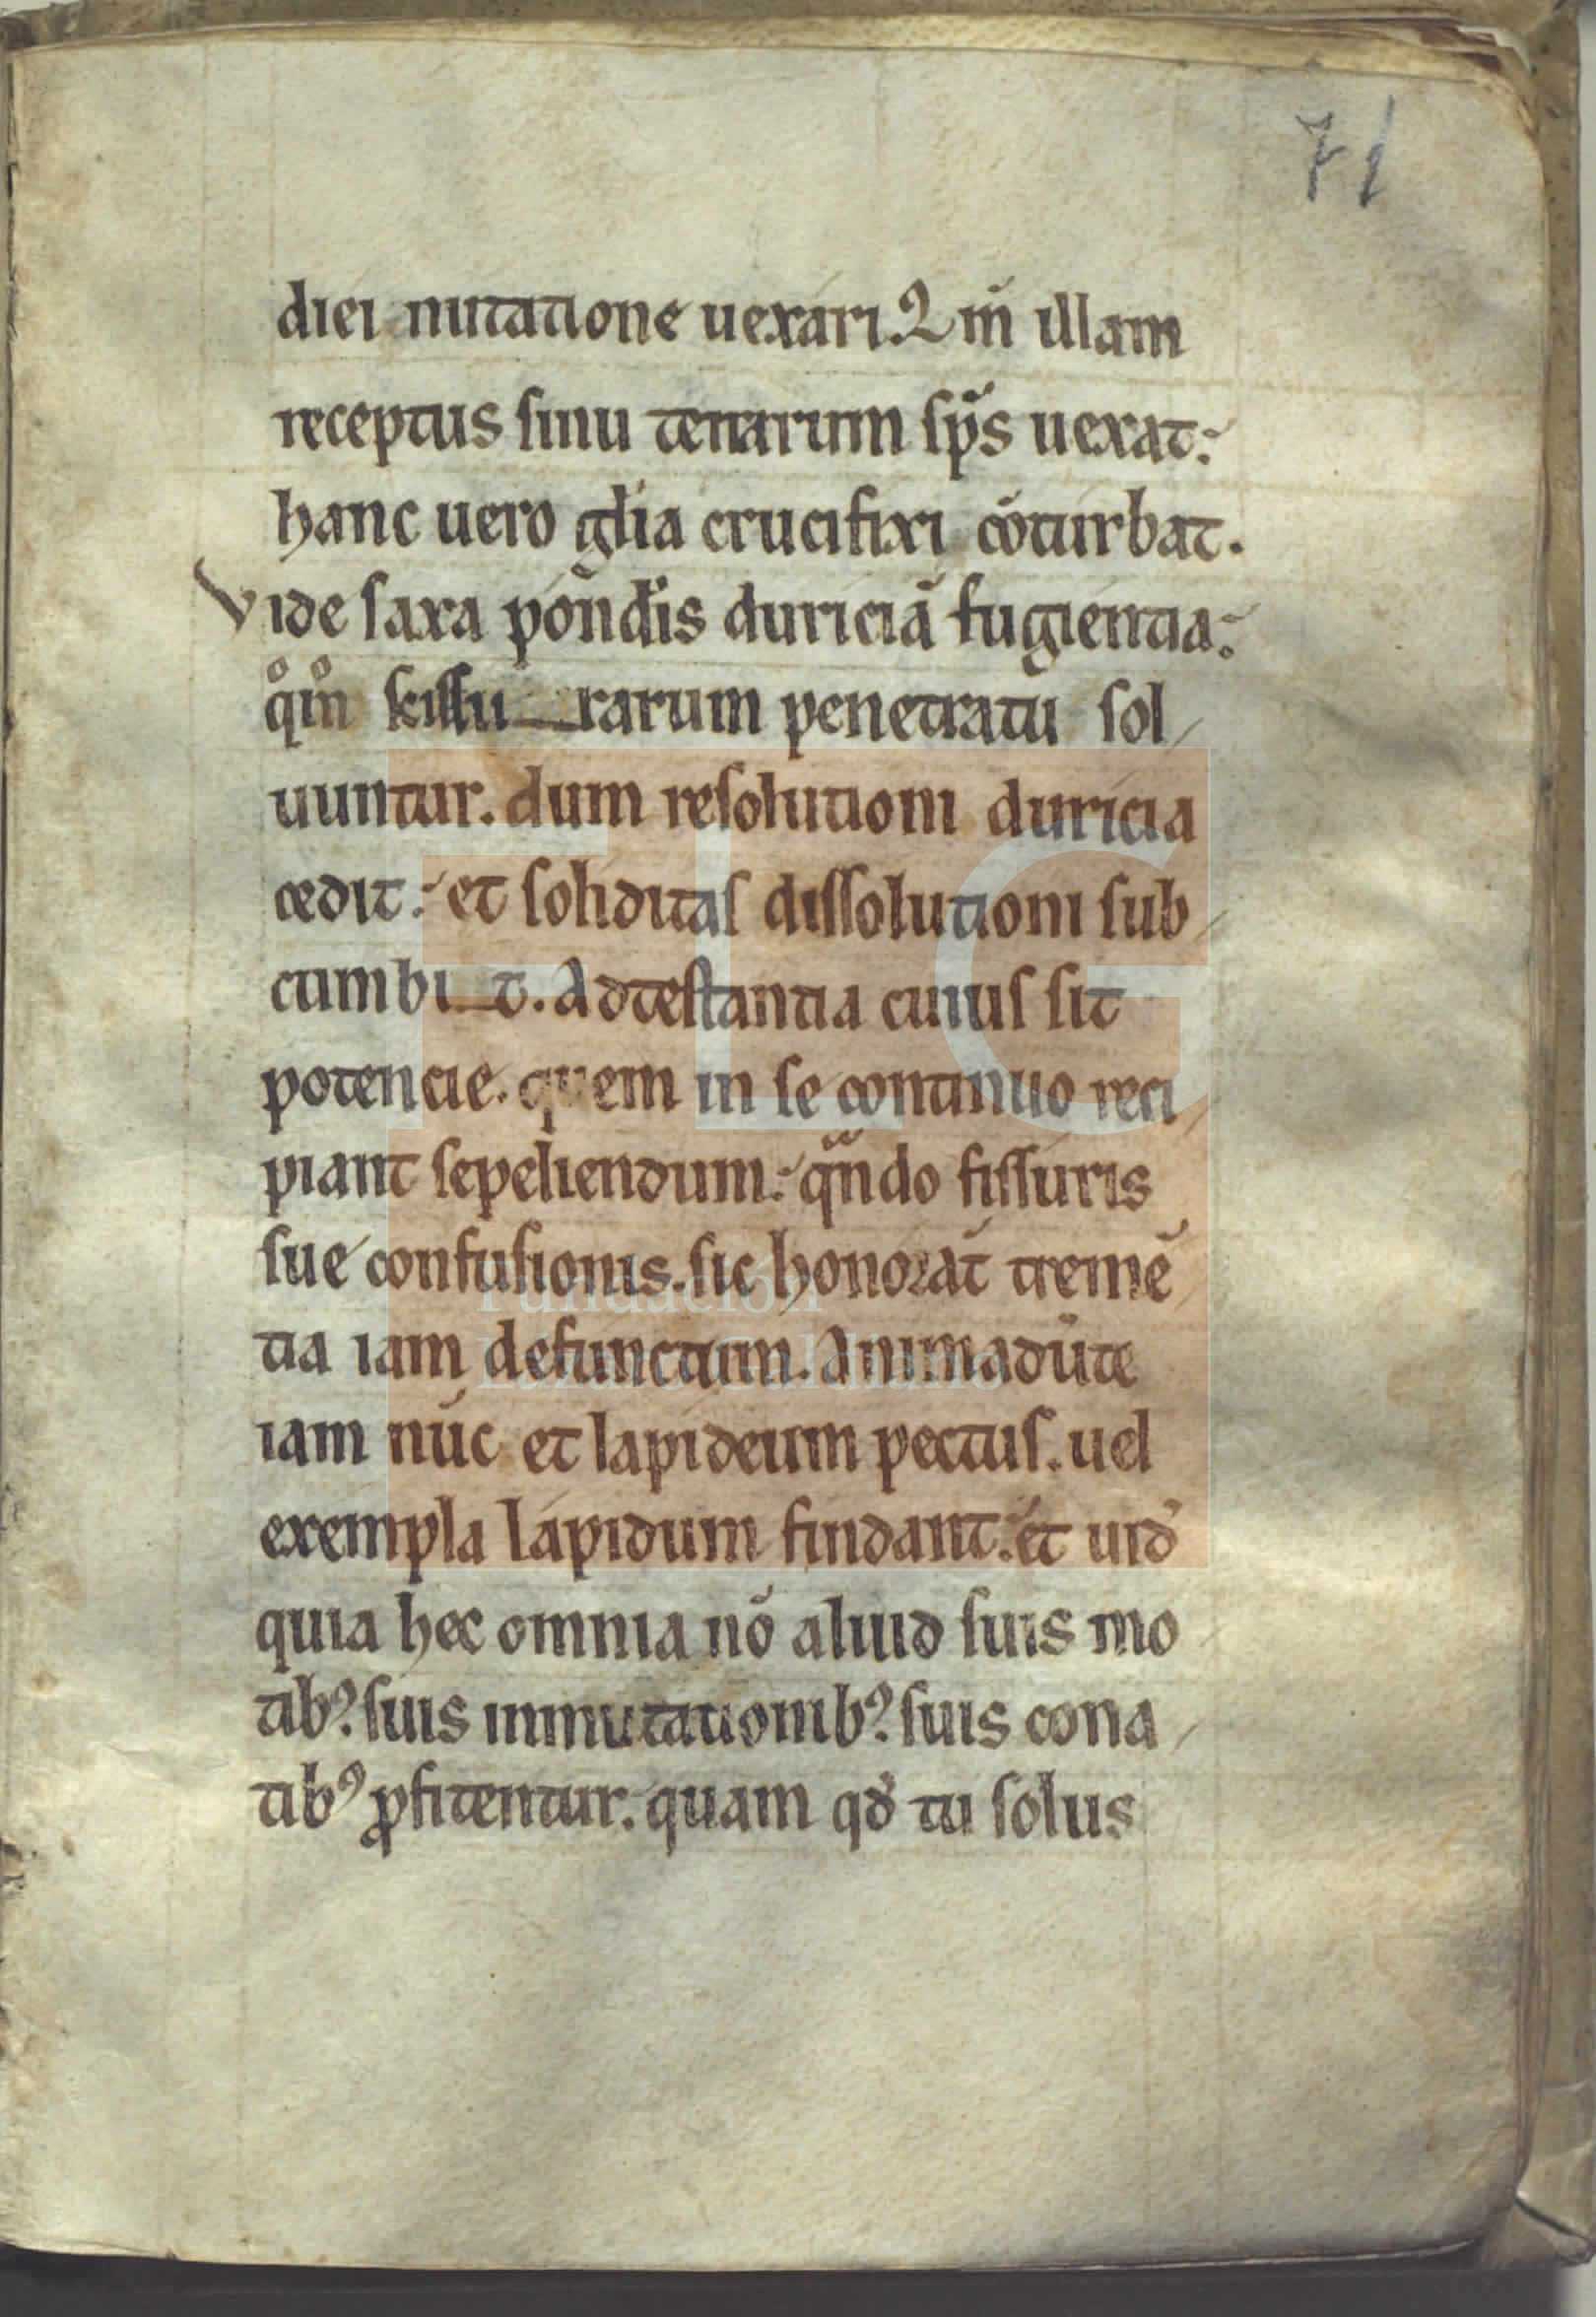 71
diei nutatione uexari. Qm̄ illam
receptus sinu terrarum sp̄s uexat:
hanc uero gl̄ia crucifixi cōturbat.
Vide saxa pond̄is duriciā fugientia:
qͦmͦ scissu_rarum penetratu sol
uuntur. dum resolutioni duricia
cedit: et soliditas dissolutioni sub
cumbi_t. Adtestantia cuius sit
potencie. quem in se continuo reci
piant sepeliendum: qn̄do fissuris
sue confusionis. sic honorāt tremē
tia iam defunctum. Animadūte
iam nūc et lapideum pectus. uel
exempla lapidum findant. et uid̓
quia hec omnia nō aliud suis mo
tibꝰ. suis inmutationibꝰ. suis cona
tibꝰ ꝓfitentur. quam qd̓ tu solus
FLG
Fundación